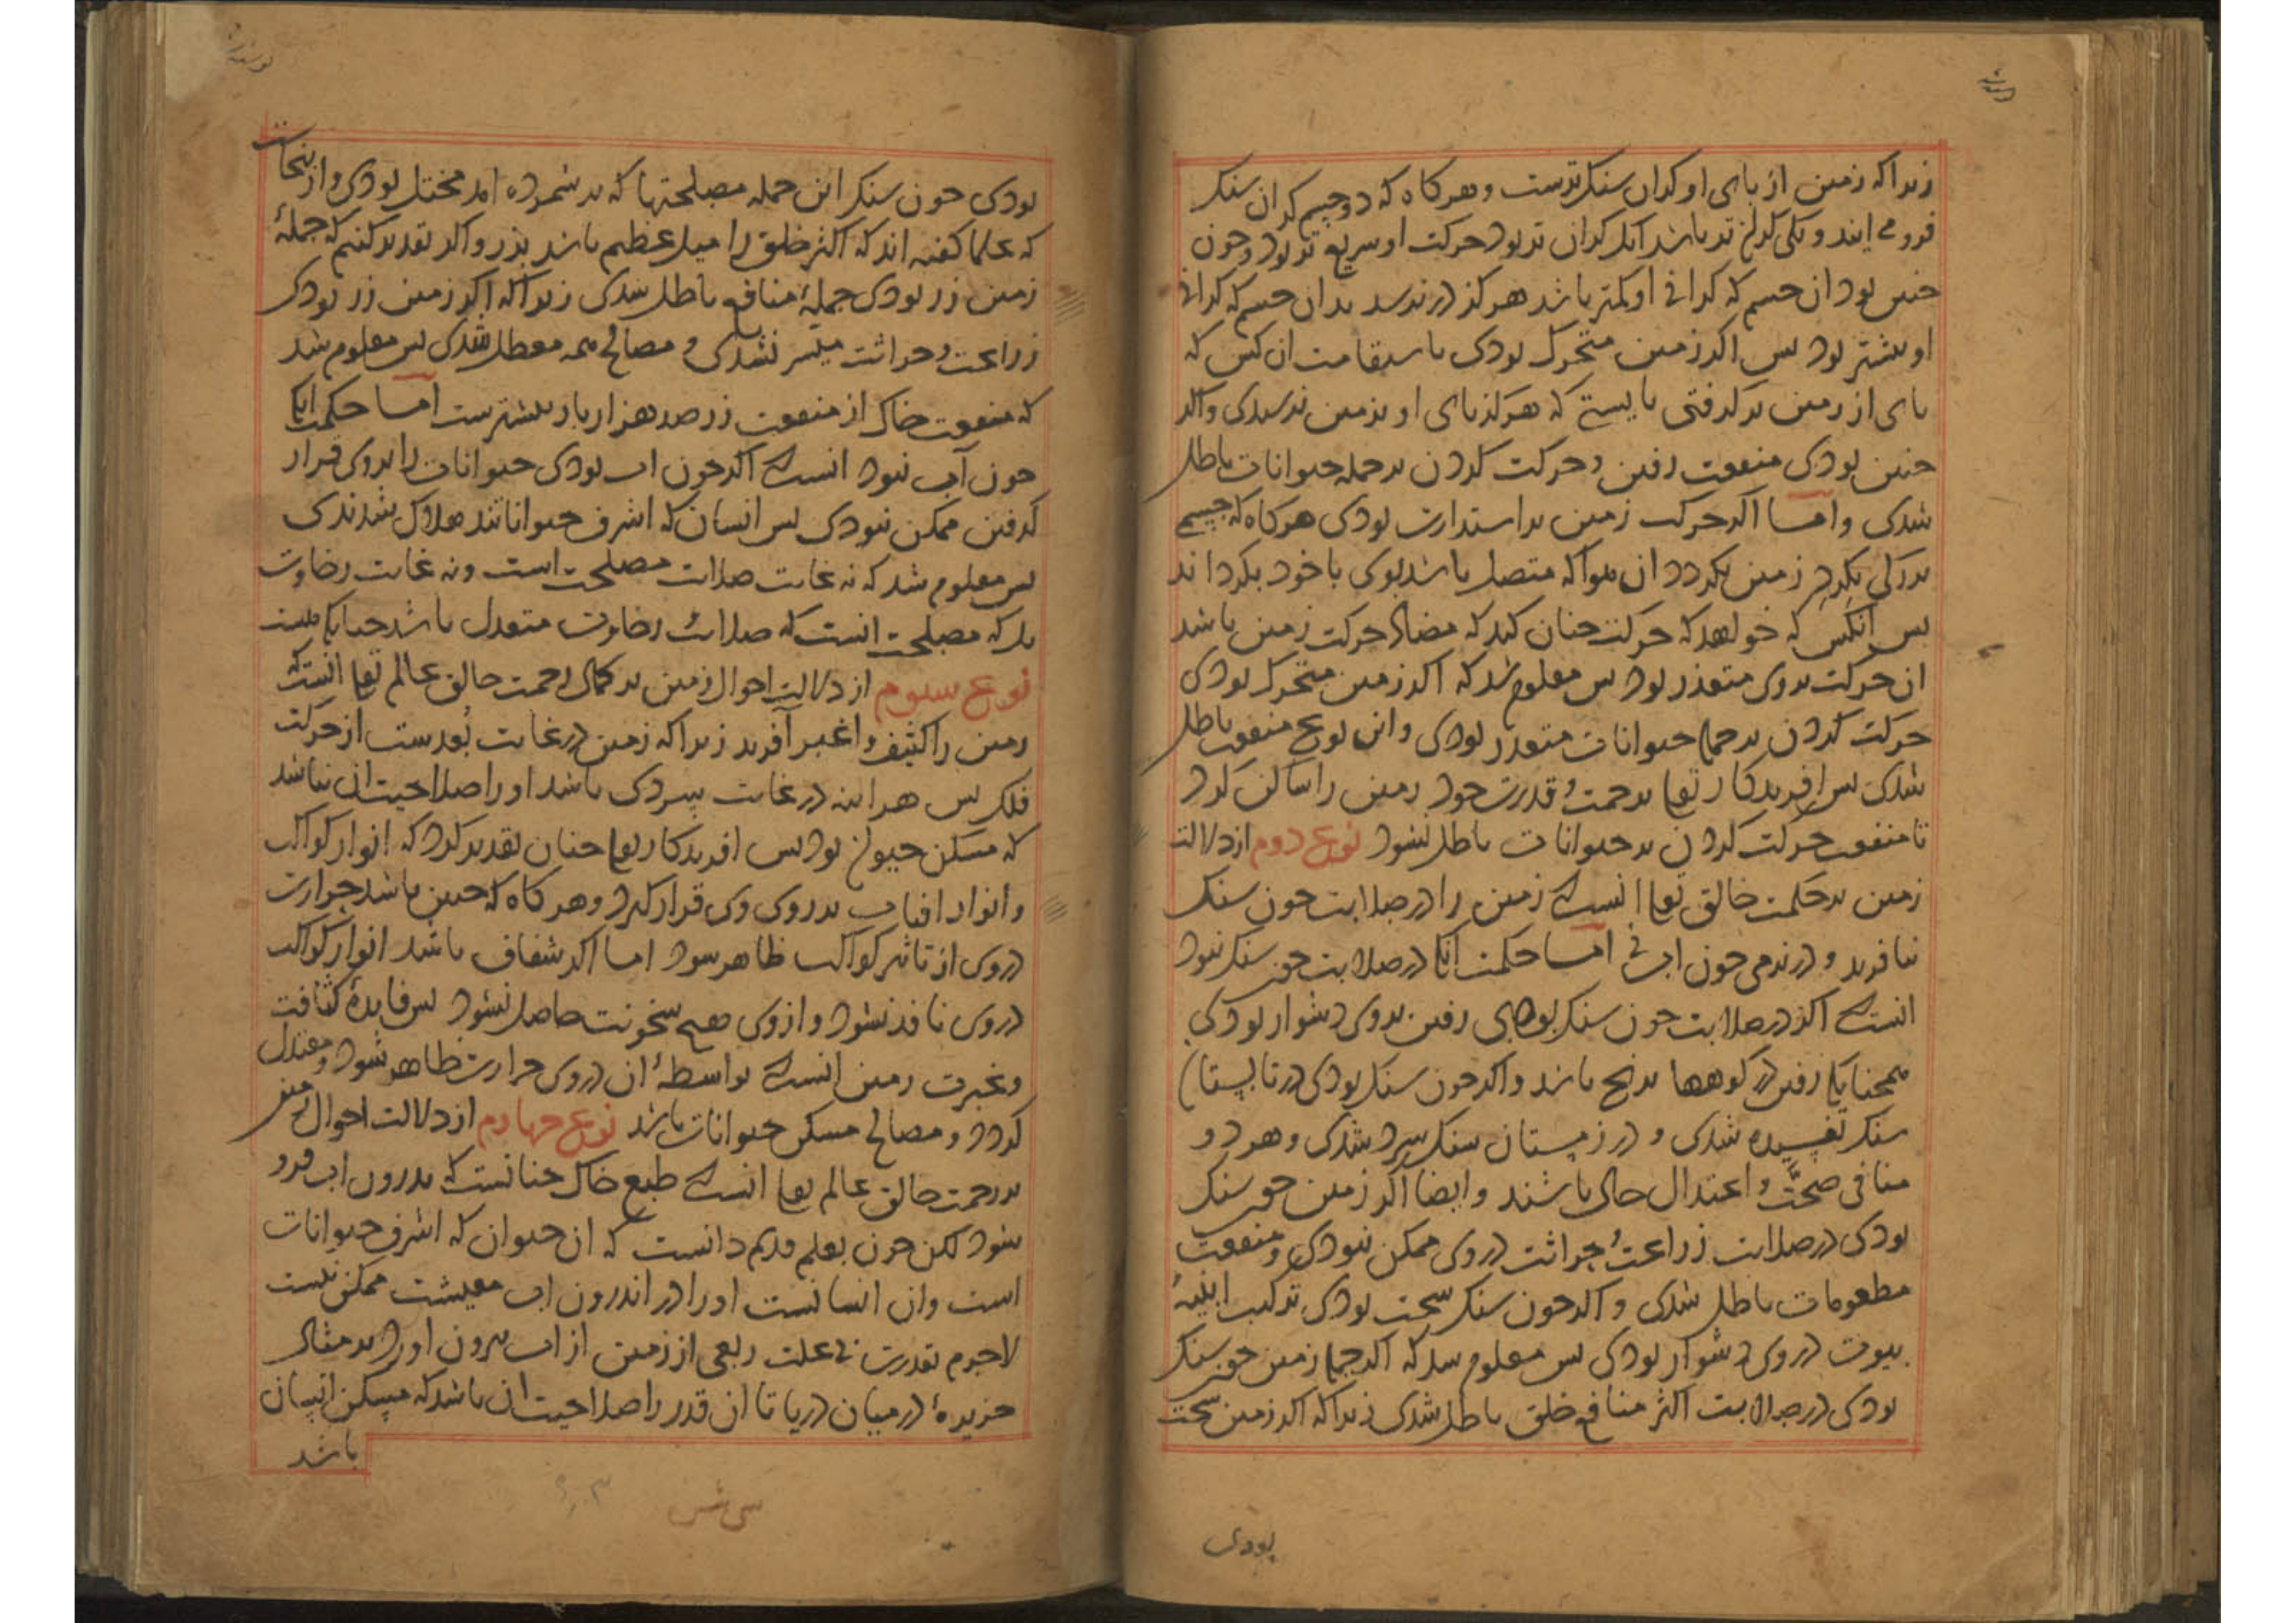 زیرا که زمین از پای او کران سنک ترست و هر کاه که دو جسم کران سنک
فرو می ایند و یکی کران تر باشد انک کران تر بود حرکت او سریع تر بود و چون
چنین بود ان جسم که کرانی او کمتر باشد هرکز در نرسد بدان جسم که کرانی
او بیشتر بود بس اکر زمین متحرک بودی باستقامت ان کس که
پای از زمین برکرفتی بایستی که هرکز پای او بزمین نرسیدی و اکر
چنین بودی منفعت رفتن و حرکت کردن بر جمله حیوانات باطل
شدی و اما اکر حرکت زمین بر استدارت بودی هر کاه که جسمی
بزرکی بکردد زمین بکردد ان هوا که متصل باشد بوی با خود بکرداند
بس انکس که خواهد که حرکت چنان کند که مضاد حرکت زمین باشد
ان حرکت بروی متعذر بود بس معلوم شد که اکر زمین متحرک بودی
حرکت کردن بر جمله حیوانات متعذر بودی و این نوع منفعت باطل
شدی بس افریدکار تعا برحمت و قدرت خود زمین را ساکن کرد
تا منفعت حرکت کردن بر حیوانات باطل نشود نوع دوم از دلالت
زمین بر حکمت خالق تعا انست که زمین را در صلابت چون سنک
نیافرید و در نرمی چون اب نی اما حکمت انک در صلابت چون سنک نبود
انست که اکر در صلابت چون سنک بودی رفتن بروی دشوار بودی
همچنانک رفتن در کوهها برنج باشد و اکر چون سنک بودی در تابستان
سنک تفسیده شدی و در زمستان سنک سرد شدی و هر دو
منافی صحت و اعتدال حال باشند و ایضا اکر زمین چون سنک
بودی در صلابت زراعت و حراثت در وی ممکن نبودی و منفعت
مطعومات باطل شدی و اکر چون سنک سخت بودی ترکیب ابنیه
بیوت در وی دشوار بودی بس معلوم شد که اکر جمله زمین چون سنک
بودی در صلابت اکثر منافع خلق باطل شدی زیرا که اکر زمین سخت
بودی
بودی چون سنک این جمله مصلحتها که بر شمرده امد مختل بودی و از اینجاست
که علما کفته اند که اکثر خلق را میل عظیم باشد بزر و اکر تقدیر کنیم که جملۀ
زمین زر بودی جملۀ منافع باطل شدی زیرا که اکر زمین زر بودی
زراعت و حراثت میسر نشدی و مصالح همه معطل شدی بس معلوم شد
که منفعت خاک از منفعت زر صد هزار بار بیشترست اما حکمت انک
چون آب نبود انست که اکر چون اب بودی حیوانات را بروی قرار
کرفتن ممکن نبودی بس انسان که اشرف حیوانانند هلاک شدندی
بس معلوم شد که نه غایت صلابت مصلحت است و نه غایت رخاوت
بل که مصلحت انست که صلابت رخاوت معتدل باشد چنانک هست
نوع سیوم از دلالت احوال زمین بر کمال رحمت خالق عالم تعا انست که
زمین را کثیف و اغبر آفرید زیرا که زمین در غایت بعدست از حرکت
فلک بس هراینه در غایت سردی باشد او را صلاحیت ان نباشد
که مسکن حیوان بود بس افریدکار تعا چنان تقدیر کرد که انوار کواکب
و انوار افتاب بر روی وی قرار کیرد و هر کاه که چنین باشد حرارت
در وی از تاثیر کواکب ظاهر شود اما اکر شفاف باشد انوار کواکب
در وی نافذ نشود و از وی هیچ سخونت حاصل نشود بس فایدۀ کثافت
و غبرت زمین انست که بواسطۀ ان در وی حرارت ظاهر شود و معتدل
کردد و مصالح مسکن حیوانات باشد نوع چهارم از دلالت احوال زمین
بر رحمت خالق عالم تعا انست که طبع خاک چنانست که بدرون اب فرو
شود لکن چون بعلم قدیم دانست که ان حیوان که اشرف حیوانات
است و ان انسانست او را در اندرون اب معیشت ممکن نیست
لاجرم بقدرت بی علت ربعی از زمین از اب بیرون اورد بر مثال
جزیرۀ در میان دریا تا ان قدر را صلاحیت ان باشد که مسکن انسان
باشد
سی شش